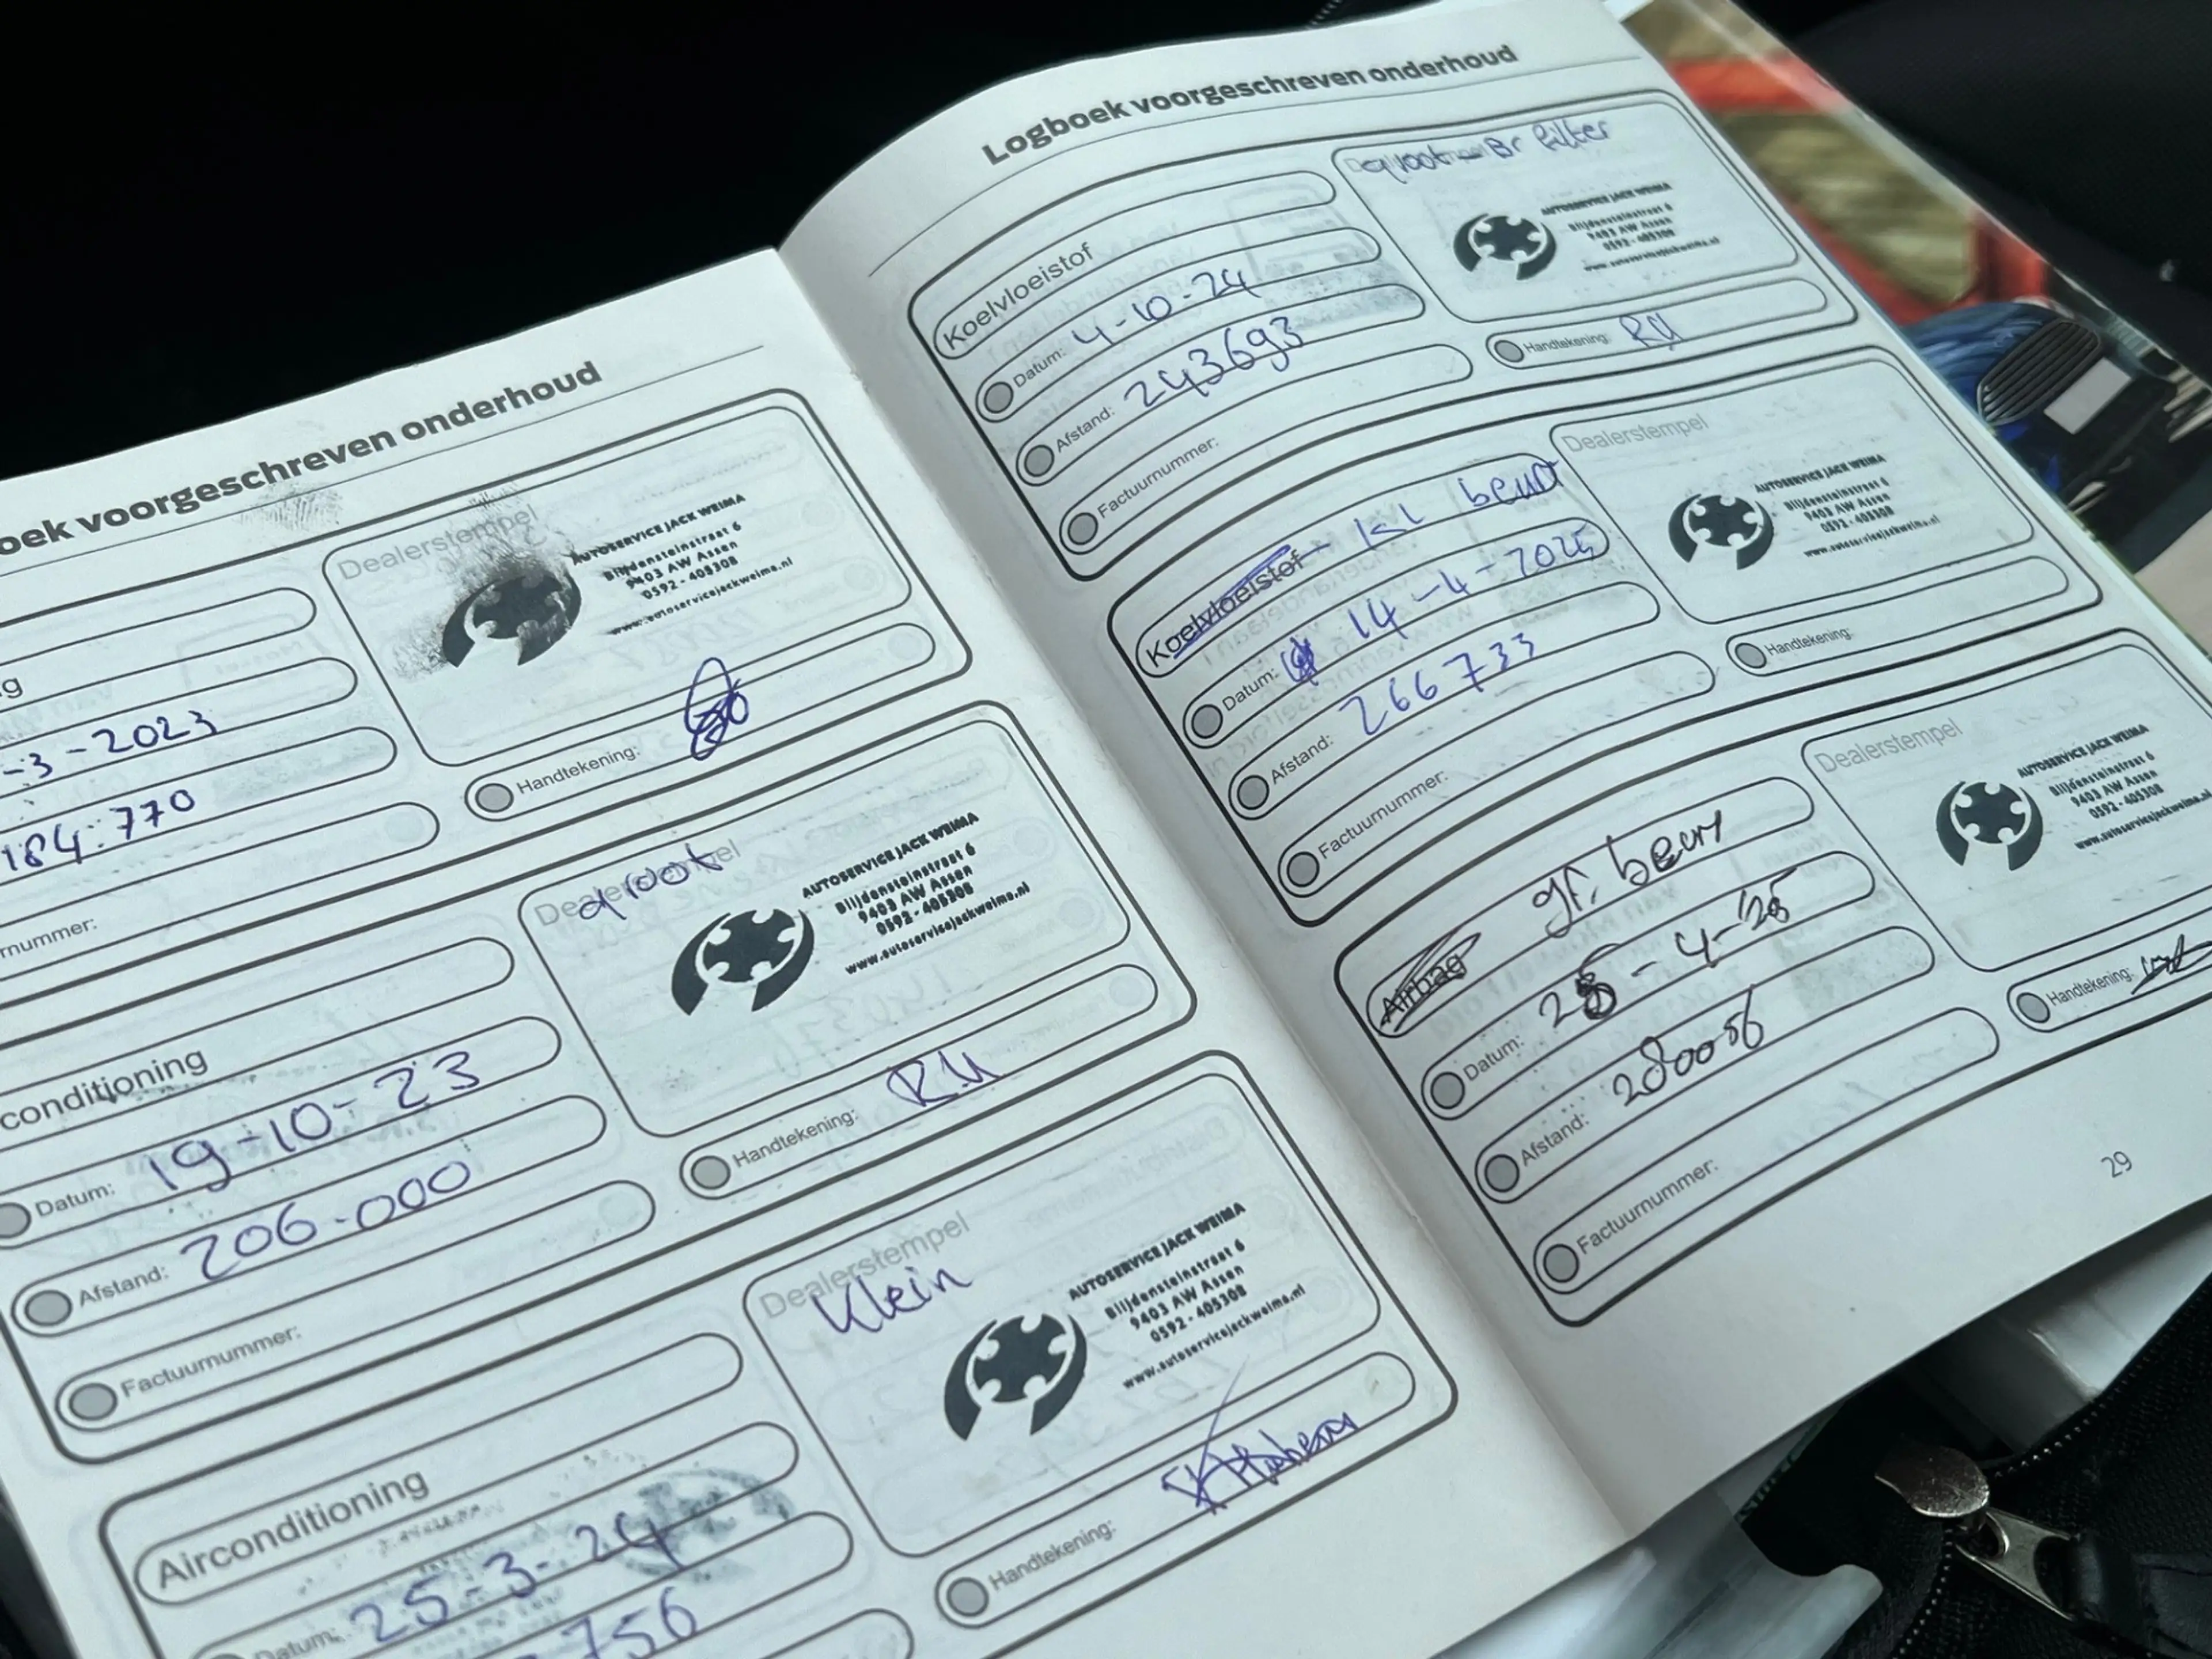 oek voorgeschreven onderhoud
g
-3-2023
184.770
rnummer:
Dealerstempel
AUTOSERVICE JACK WEIMA
Blijdensteinstraat 6
9403 AW Assen
0592 - 405308
www.autoservicejackweima.nl
Handtekening:
conditioning
Datum: 19-10-23
Afstand: 206.000
Factuurnummer:
Dealerstempel
groot
AUTOSERVICE JACK WEIMA
Blijdensteinstraat 6
9403 AW Assen
0592 - 405308
www.autoservicejackweima.nl
Handtekening: RM
Airconditioning
Datum: 25-3-24
756
Dealerstempel
Klein
AUTOSERVICE JACK WEIMA
Blijdensteinstraat 6
9403 AW Assen
0592 - 405308
www.autoservicejackweima.nl
Handtekening:
Logboek voorgeschreven onderhoud
Koelvloeistof
Datum: 4-10-24
Afstand: 243693
Factuurnummer:
groot - Br filter
AUTOSERVICE JACK WEIMA
Blijdensteinstraat 6
9403 AW Assen
0592 - 405308
www.autoservicejackweima.nl
Handtekening: RM
Koelvloeistof - kl beurt
Datum: 14-4-2025
Afstand: 266733
Factuurnummer:
Dealerstempel
AUTOSERVICE JACK WEIMA
Blijdensteinstraat 6
9403 AW Assen
0592 - 405308
www.autoservicejackweima.nl
Handtekening:
Airbag gr. beurt
Datum: 28-4-'25
Afstand: 280056
Factuurnummer:
Dealerstempel
AUTOSERVICE JACK WEIMA
Blijdensteinstraat 6
9403 AW Assen
0592 - 405308
www.autoservicejackweima.nl
Handtekening:
29